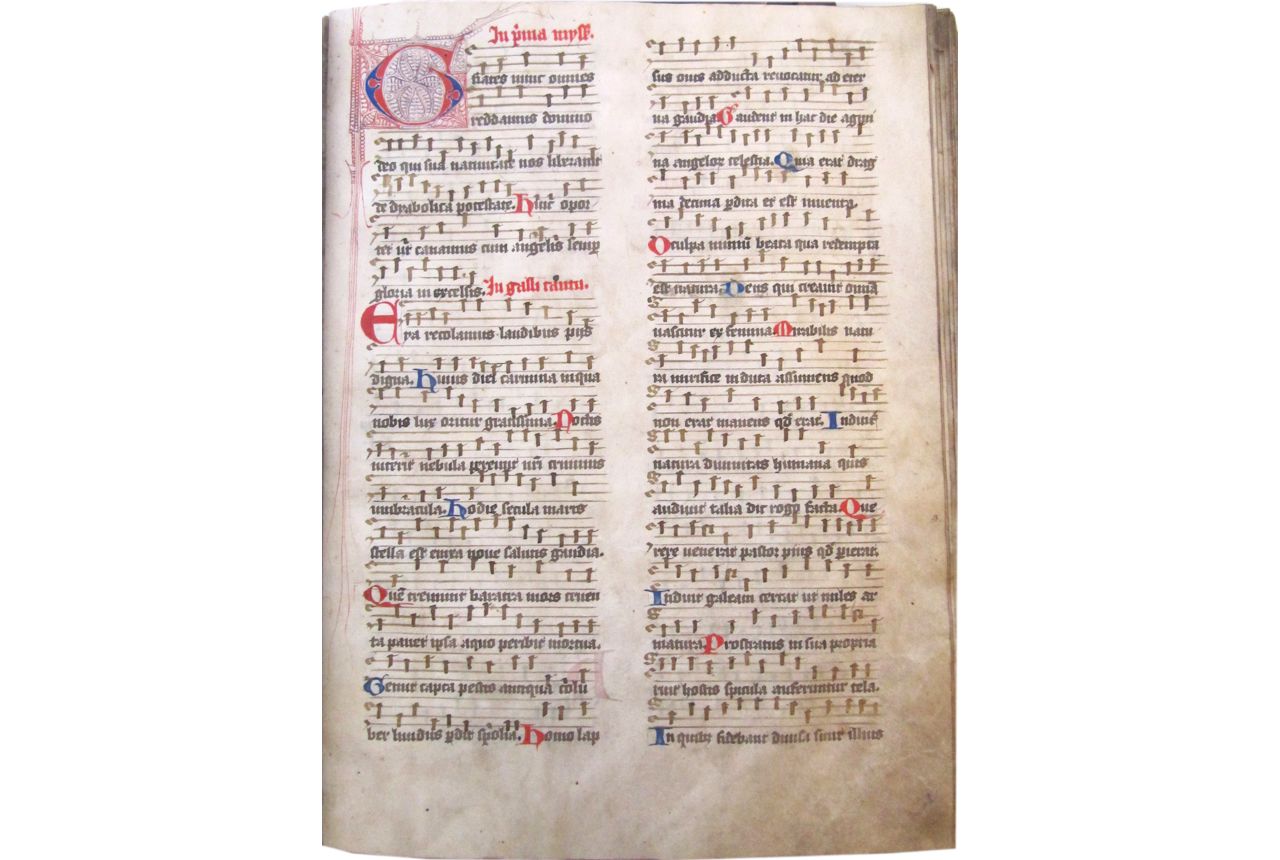 In p̄ma myss̄.
Grates nunc omnes
reddamus domino
deo qui sua natiuitate nos liberauit
de dyabolica potestate. Huic opor
tet ut canamus cum angelis semp̄
gloria in excelsis. In galli cantu.
Eya recolamus laudibus pijs
digna. Huius diei carmina in qua
nobis lux oritur gratissima. Noctis
interit nebula pereunt nr̄i criminis
umbracula. Hodie seculo maris
stella est enixa noue salutis gaudia.
Quē tremunt baratra mors cruen
ta pauet ipsa a quo peribit mortua.
Gemit capta pestis antiqua colu
ber liuidus perdit spolia. Homo lap
sus ouis adducta reuocatur ad eter
na gaudia. Gaudent in hac die agmi
na angelor celestia. Quia erat drag
ma decima perdita et est inuenta.
O culpa nimiū beata qua redempta
est natura. Deus qui creauit omīa
nascitur ex femina. Mirabilis natu
ra mirifice induta assumens quod
non erat manens qd̄ erat. Induit
natura diuinitas humana quis
audiuit talia dic rogo facta. Que
rere uenerat pastor pius qd̄ perierat.
Induit galeam certat ut miles ar
matura. Prostratus in sua propria
ruit hostis spicula auferuntur tela.
In quibus fidebant diuisi sunt illius